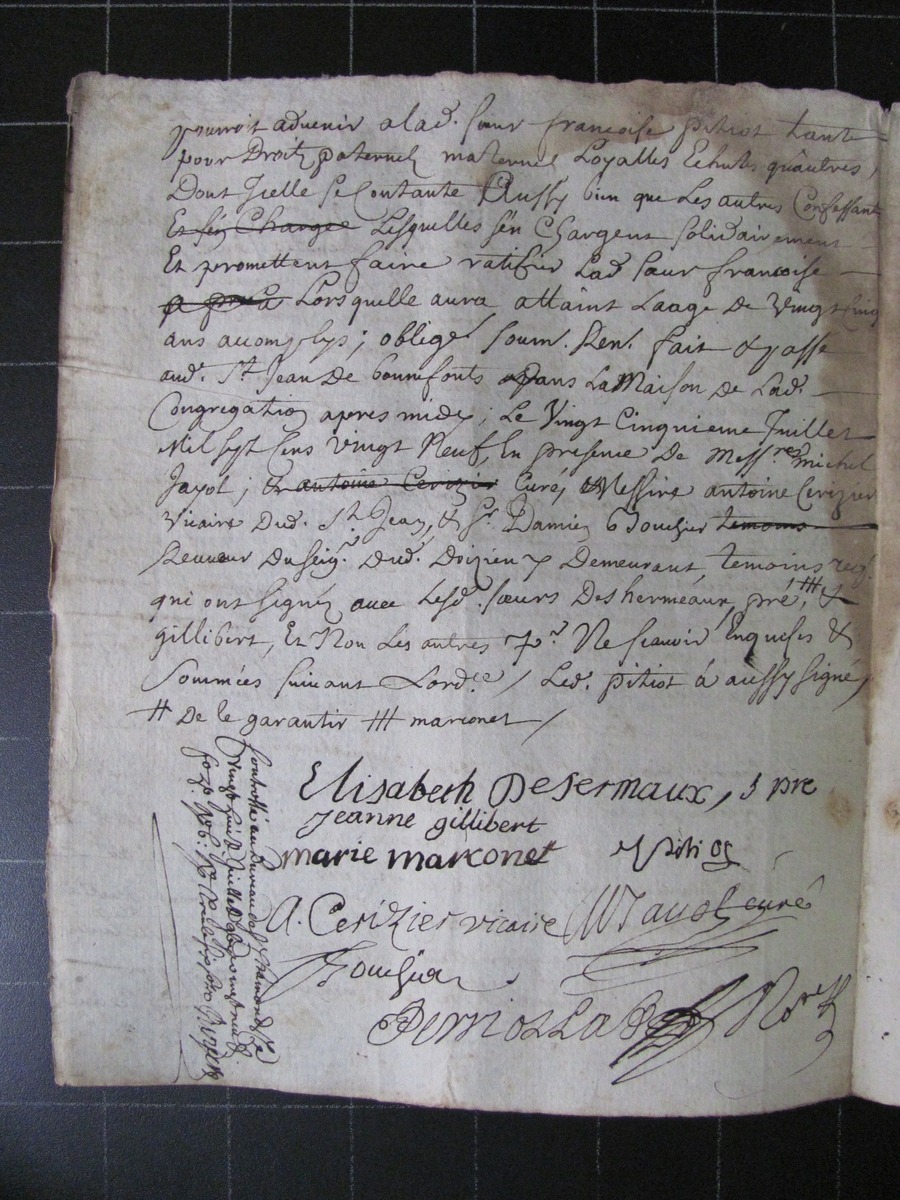 pourroit aduenir a lad. sœur francoise pitiot tant
pour Droitz paternel maternel Loyalles Echute qu'autres
Dont Icelle se Contante Aussy bien que Les autres Confessant
Et s'en Chargee Lesquelles s'en Chargent solidairement
Et promettent faire ratiffier Lad. sœur francoise
Lorsquelle aura attaint Laage De Vingt Cinq
ans accomplys; oblige soum. Ren. fait & passe
aud. St. Jean De bonnefonts Dans La Maison De Lad.
Congregation apres midy; Le Vingt Cinquieme Juillet
Mil sept Cens Vingt Neuf, En presence De Messres. michel
Jayol; & antoine Cerizier Curé, & Messire antoine Cerizier
Vicaire Dud. St. Jean, & Sr. Damien Bouchier temoins
Receueur Du Seigr. Dud. Doizieu y Demeurant, temoins
qui ont signéz auec Lesd. sœurs Deshermeaux, pré, # &
gillibert, Et Non Les autres pr. Ne scauoir Enquises &
Sommées suiuant Lordce / Led. pitiot à aussy signé /
# De le garantir # marconet /
Elisabeth Desermaux, s pre
Jeanne gillibert
marie marconet pitiot
A. Cerizier vicaire MJayol curé
Bouchier
Not.re
Controllé au Bureau de St. chamond Le
vingt huit Juillet